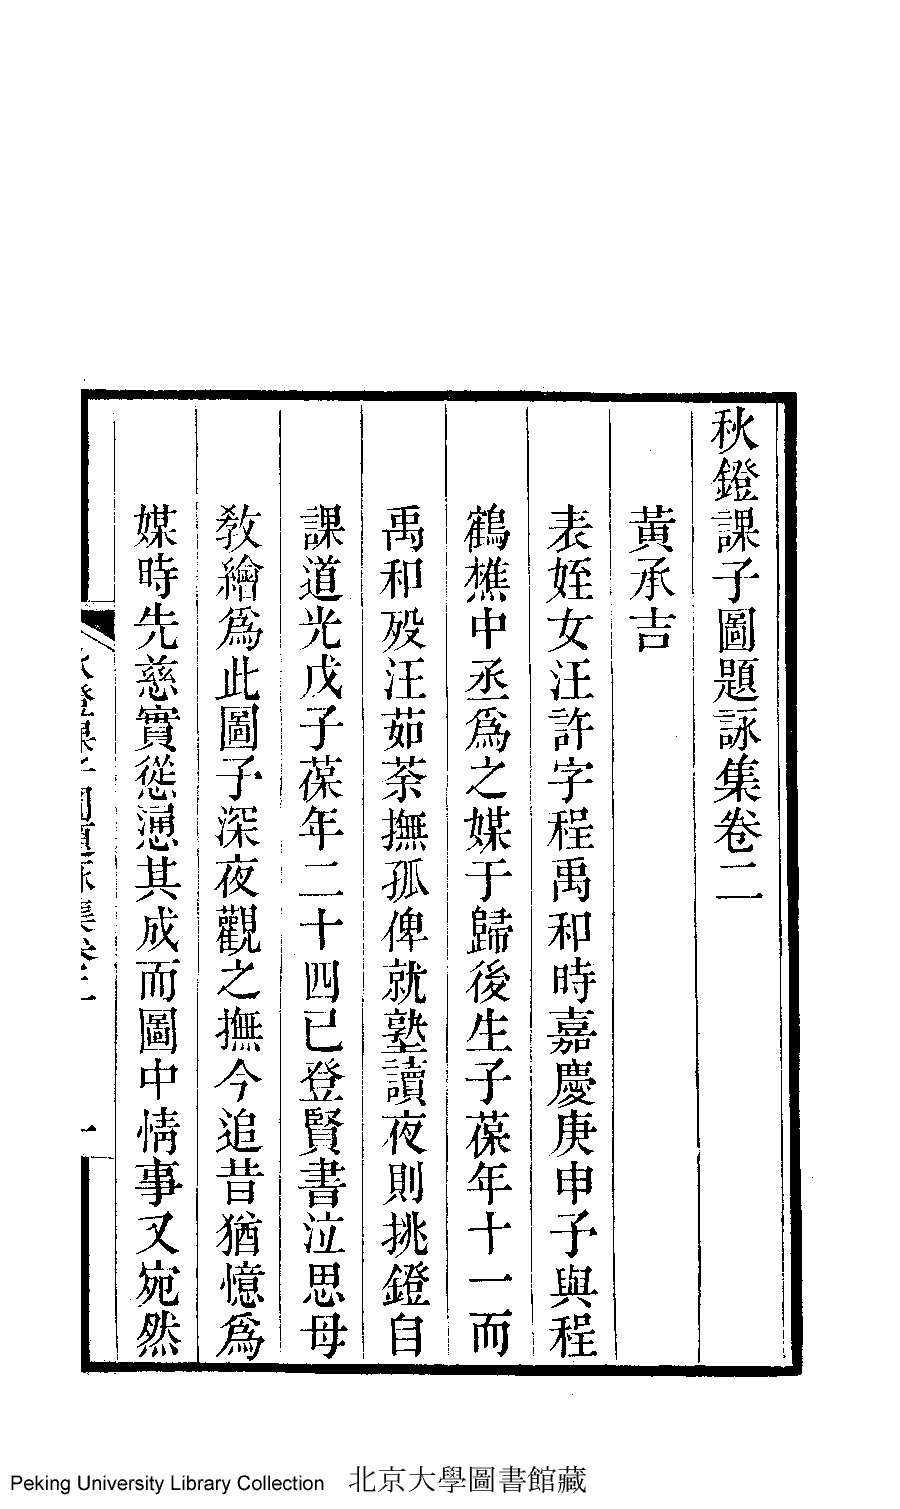 秋鐙課子圖題詠集卷二
黃承吉
表姪女汪許字程禹和時嘉慶庚申予與程
鶴樵中丞爲之媒于歸後生子葆年十一而
禹和歿汪茹荼撫孤俾就塾讀夜則挑鐙自
課道光戊子葆年二十四已登賢書泣思母
敎繪爲此圖予深夜觀之撫今追昔猶憶爲
媒時先慈實慫慂其成而圖中情事又宛然
秋鐙課子圖題詠集卷二
一
Peking University Library Collection 北京大學圖書館藏